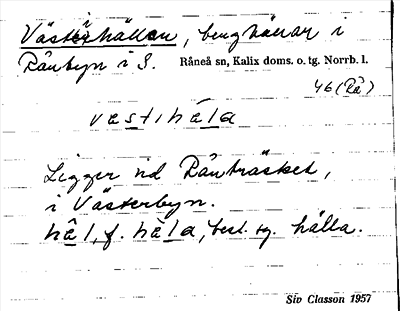 Västihällan, berghällar i
Rånbyn i S. Råneå sn, Kalix doms. o. tg. Norrb. l.
46 (Rå)
västihäla
Ligger vid Rånträsket,
i Västerbyn.
häl, f. häla, best. sg. hälla.
Siv Classon 1957